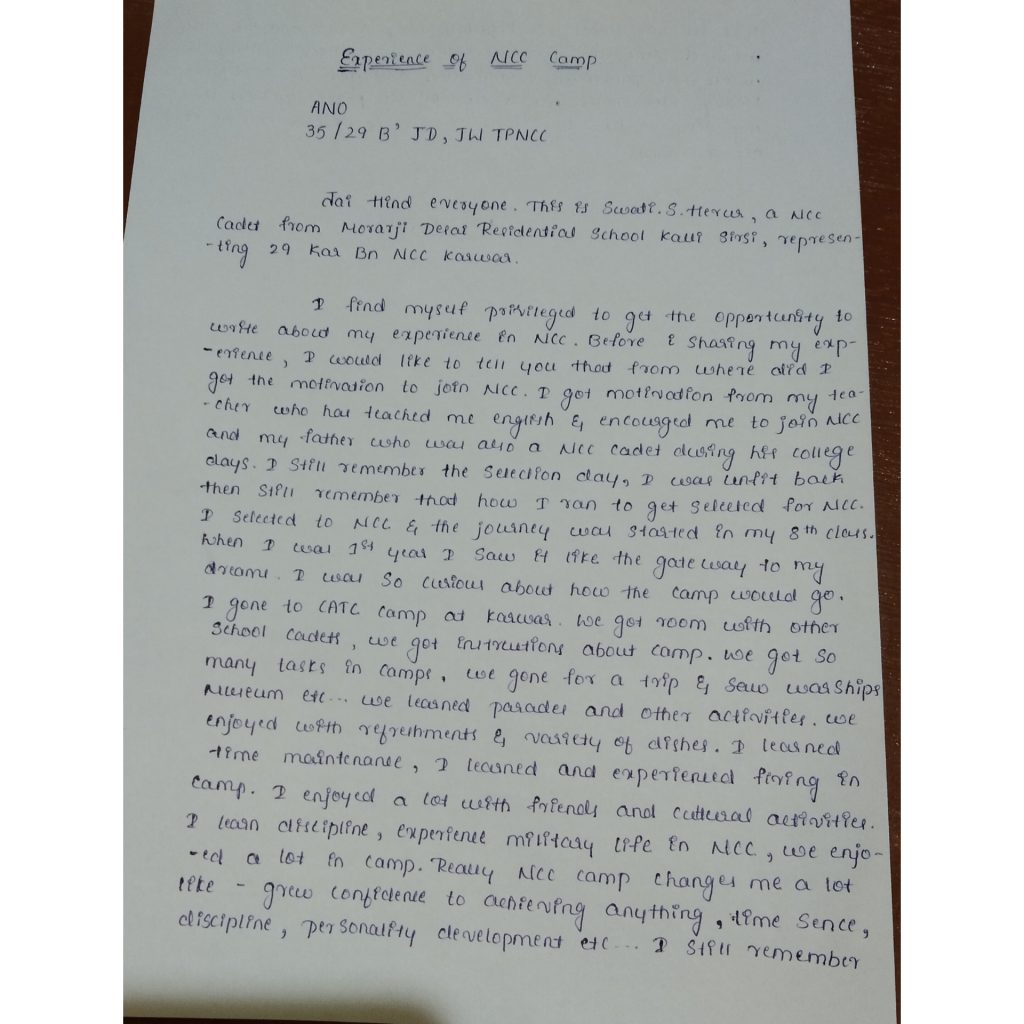 Experience of NCC Camp
ANO
35/29 B' JD, JW TPNCC
Jai Hind everyone. This is Swati.S.Herur, a NCC
Cadet from Morarji Desai Residential School Kalli Sirsi, represen-
-ting 29 Kar Bn NCC Karwar.
I find myself privileged to get the opportunity to
write about my experience in NCC. Before I sharing my exp-
-erience, I would like to tell you that from where did I
got the motivation to join NCC. I got motivation from my tea-
-cher who has teached me english & encouraged me to join NCC
and my father who was also a NCC cadet during his college
days. I still remember the selection day, I was unfit back
then still remember that how I ran to get selected for NCC.
I selected to NCC & the journey was started in my 8th class.
When I was 1st year I saw it like the gateway to my
dreams. I was so curious about how the camp would go.
I gone to CATC camp at Karwar. We got room with other
School cadets, we got instructions about camp. We got so
many tasks in camps, we gone for a trip & saw warships
Museum etc... we learned parades and other activities. we
enjoyed with refreshments & variety of dishes. I learned
time maintenance, I learned and experienced firing in
camp. I enjoyed a lot with friends and cultural activities.
I learn discipline, experience military life in NCC, we enjo-
-ed a lot in camp. Really NCC camp changes me a lot
like - grew confidence to achieving anything, time sence,
discipline, personality development etc... I still remember